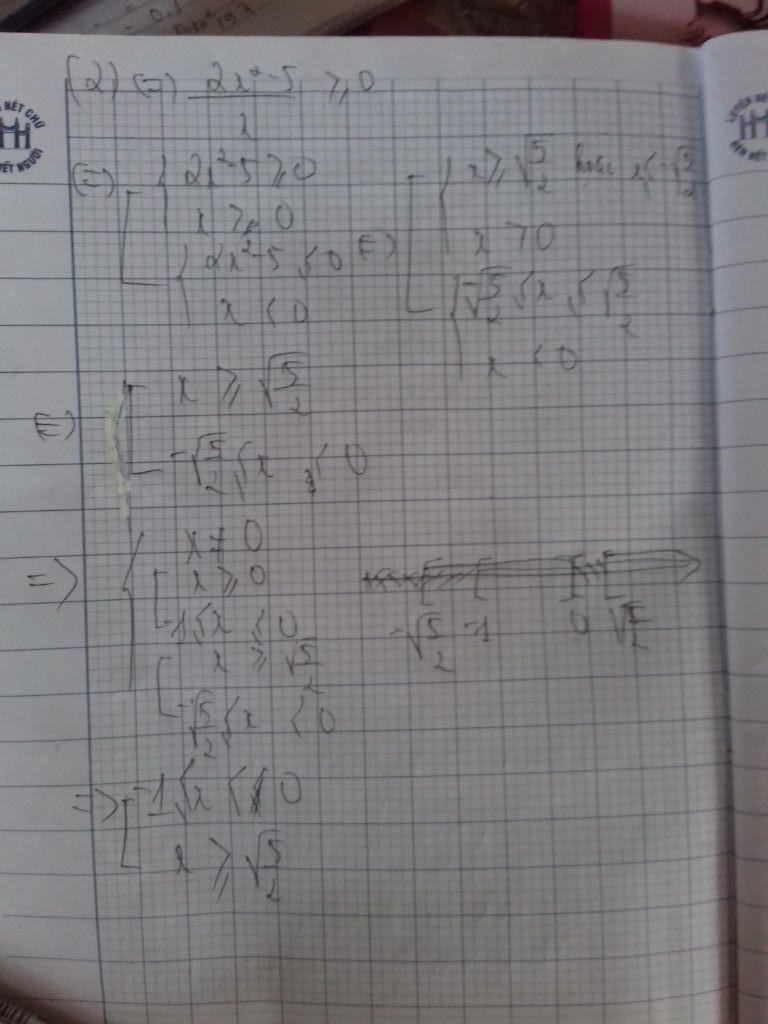 (2) (=) 2x²-5 / x ≥ 0
(=) [ { 2x²-5 ≥ 0
x ≥ 0
{ 2x²-5 ≤ 0
x < 0
(=) [ { x ≥ √5/2 hoặc x ≤ -√5/2
x > 0
{ -√5/2 ≤ x ≤ √5/2
x < 0
(=) [ x ≥ √5/2
-√5/2 ≤ x < 0
=> { x ≠ 0
[ x ≥ 0
-1 ≤ x ≤ 0
[ x ≥ √5/2
-√5/2 ≤ x < 0
-√5/2 -1 0 √5/2
=> [ -1 ≤ x < 0
x ≥ √5/2
NÉT CHỮ
NẾT NGƯỜI